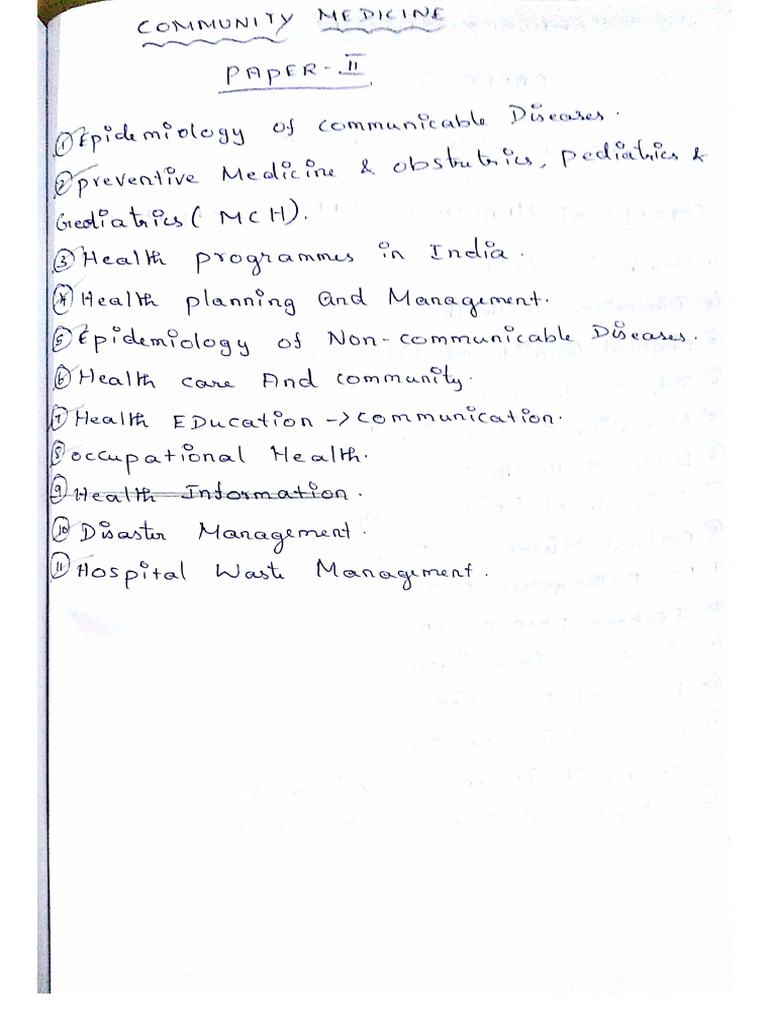 COMMUNITY MEDICINE
PAPER - II
① Epidemiology of communicable Diseases.
② preventive Medicine & obstutrics, pediatrics &
Gediatrics ( MCH).
③ Health programmes in India.
④ Health planning and Management.
⑤ Epidemiology of Non-communicable Diseases.
⑥ Health care And community.
⑦ Health EDucation -> communication.
⑧ occupational Health.
⑨ Health Information.
⑩ Disaster Management.
⑪ Hospital Waste Management.